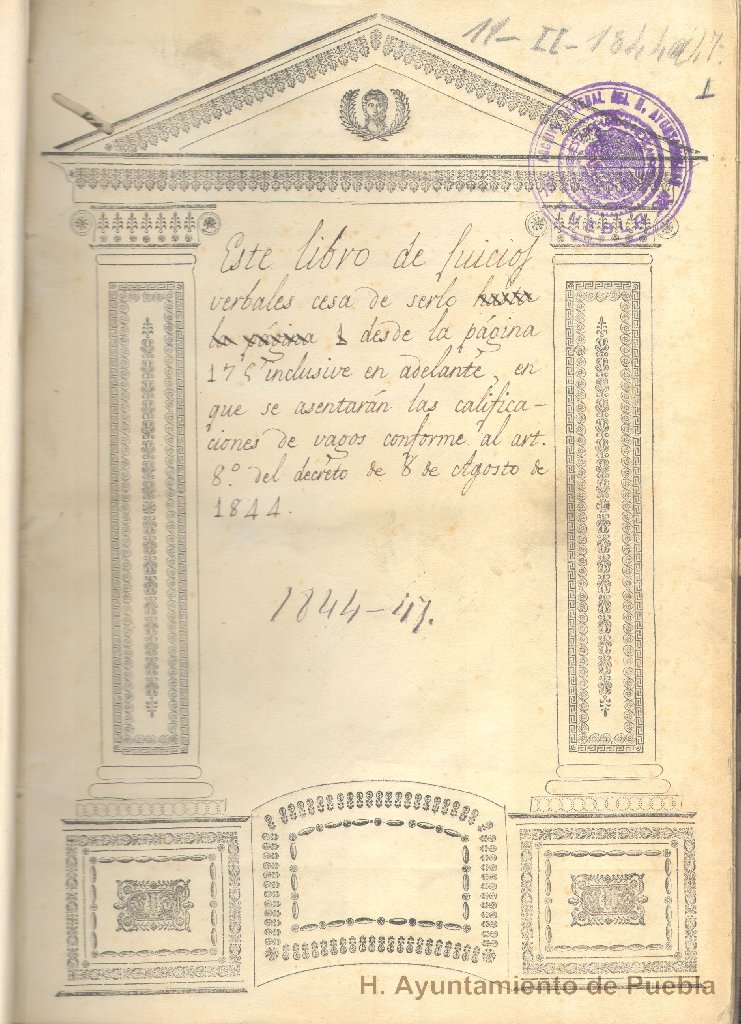 11-II-1844 a 47.
1
ARCHIVO GENERAL DEL H. AYUNTAMIENTO
PUEBLA
Este libro de Juicios
verbales cesa de serlo hasta
la página 1 desde la página
175 inclusive en adelante, en
que se asentarán las califica-
ciones de vagos conforme al art.
8.º del decreto de 8 de Agosto de
1844.
1844-47.
H. Ayuntamiento de Puebla